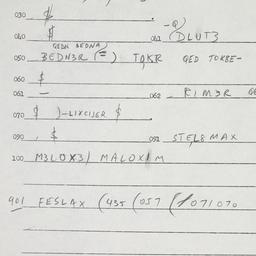 030 $
-Q)
040 $ 041 (DLUT3
GEDN BEDNA)
050 3EDN3R (=) TQKR GED TOKBE-
060 $
061 — 062 - RIM3R GE
070 $ )-LIXCIJER $
090 , $ 092 STEL8MAX
100 M3LOX3/ MALOX/M
901 FESLAX (435 (057 (/071070